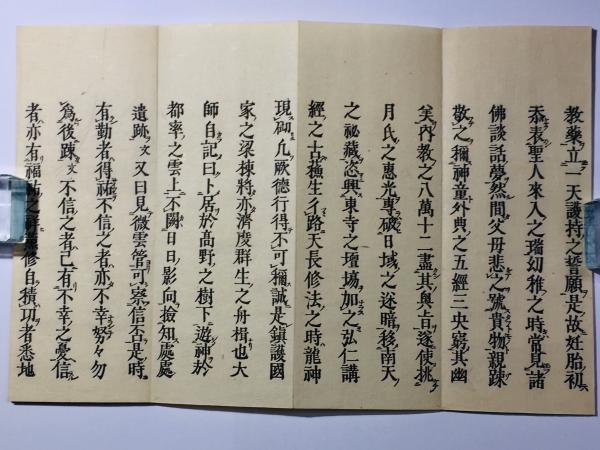 教藥立一天護持之誓願是故妊胎初
忝表聖人來入之瑞幼稚之時常見諸
佛談話夢然間父母悲之號貴物親踈
敬之稱神童外典之五經三史窮其幽
矣內教之八萬十二盡其奧旨遂使挑
月氏之惠光專破日域之迷暗移南天
之祕藏恣興東寺之壇場加之弘仁講
經之古樵生路天長修法之時龍神
現砌凡厥德行得不可稱誠是鎮護國
家之梁棟將亦濟度群生之舟楫也大
師自記曰卜居於高野之樹下遊神於
都率之雲上不闕日日影向撿知處處
遺跡文又曰見微雲管可察信否是時
有勤者得祐不信之者亦不幸努々勿
爲後踈文不信之者已有不幸之憂信
者亦有福祐之修自積功者悉地